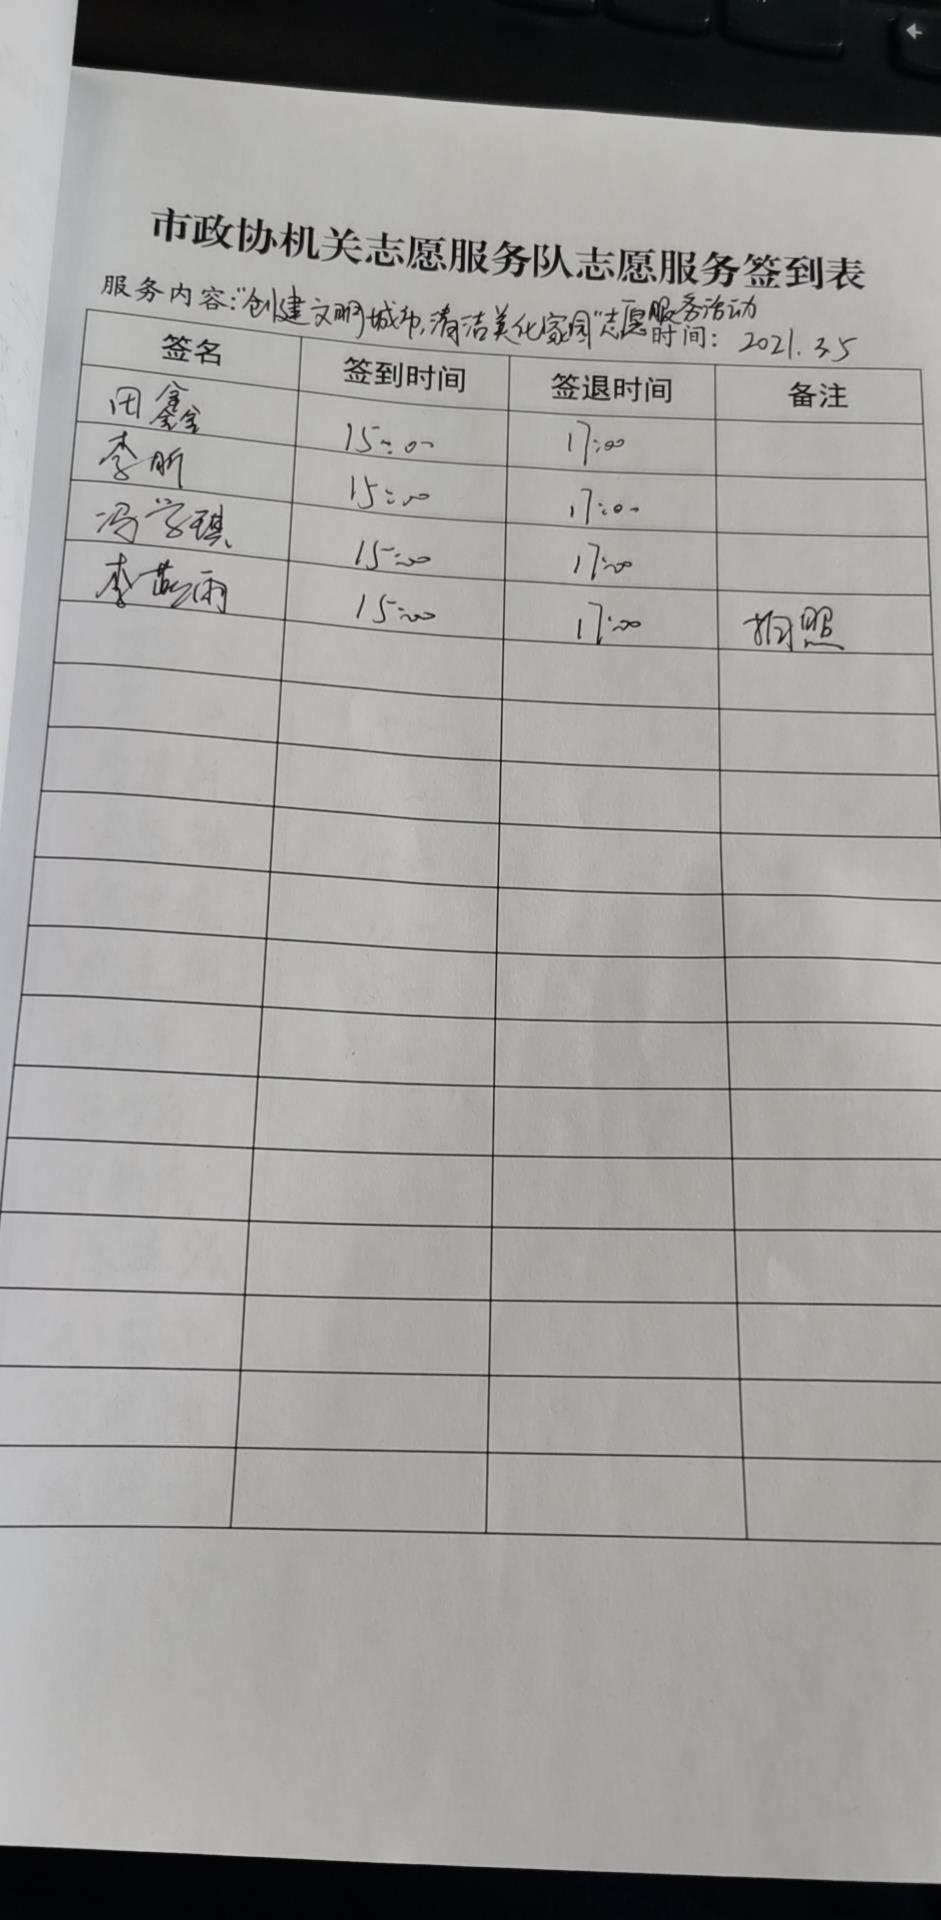 市政协机关志愿服务队志愿服务签到表
服务内容:"创建文明城市,清洁美化家园"志愿服务活动
时间: 2021.3.5
签名 签到时间 签退时间 备注
田鑫 15:00 17:00
李昕 15:00 17:00
冯学琪 15:00 17:00
李 雨 15:00 17:00 拍照